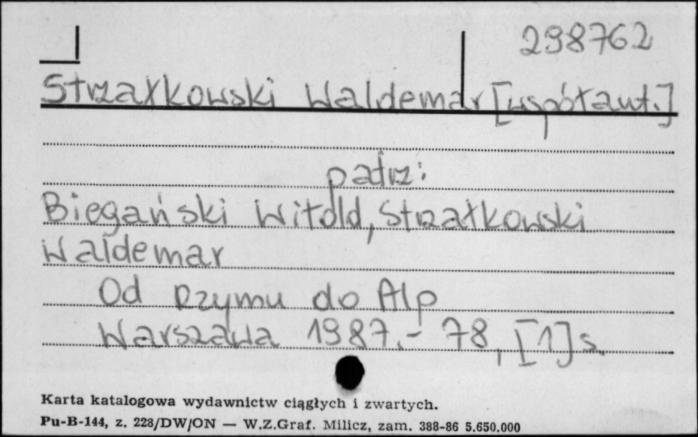 298762
Strzałkowski Waldemar [współaut.]
patrz:
Biegański Witold, Strzałkowski
Waldemar
Od Rzymu do Alp
Warszawa 1987.- 78, [1] s.
Karta katalogowa wydawnictw ciągłych i zwartych.
Pu-B-144, z. 228/DW/ON — W.Z.Graf. Milicz, zam. 388-86 5.650.000